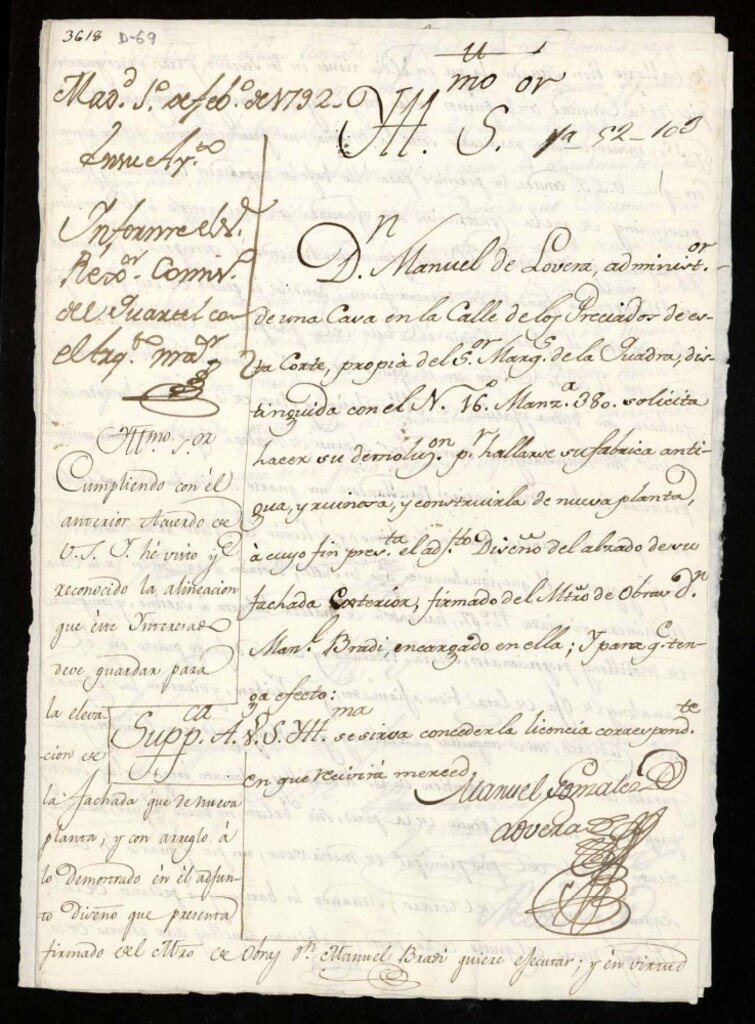 3618 D-69
Mad.d 1.o de feb.o de 1792.
Yll.mo S.or
1a 52-103
En su Ay.to
Informe el S.r
Rexo.or Comis.o
del Quartel con
el Arq.to ma.or
D.n Manuel de Lovera, administ.or
de una Casa en la Calle de los Preciados de es-
ta Corte, propia del S.or Marq.s de la Quadra, dis-
tinguida con el N. 16. Manz.a 380. solicita
hacer su demoluz.on p.r hallarse su fabrica anti-
gua, y ruinosa, y construirla de nueva planta,
à cuyo fin pres.ta el adj.to Diseño del alzado de su
fachada Exterior, firmado del Mtro de Obras D.n
Man.l Bradi, encargado en ella; Y para q.e ten-
ga efecto:
Supp.ca A. V. S. Yll.ma se sirva conceder la licencia correspond.te
en que recivirá merced.
Manuel Gonzalez D
Lovera
Yllmo. S.or
Cumpliendo con él
anterior Acuerdo de
V. S. Y. hé visto y
reconocido la alineacion
que éste Interesado
deve guardar para
la eleva-
cion de
la fachada que de nueva
planta, y con arreglo á
lo demostrado én él adjun-
to Diseño que presenta
firmado del Mtro de Obras D.n Manuel Bradi quiere éjecutar; y én virtud